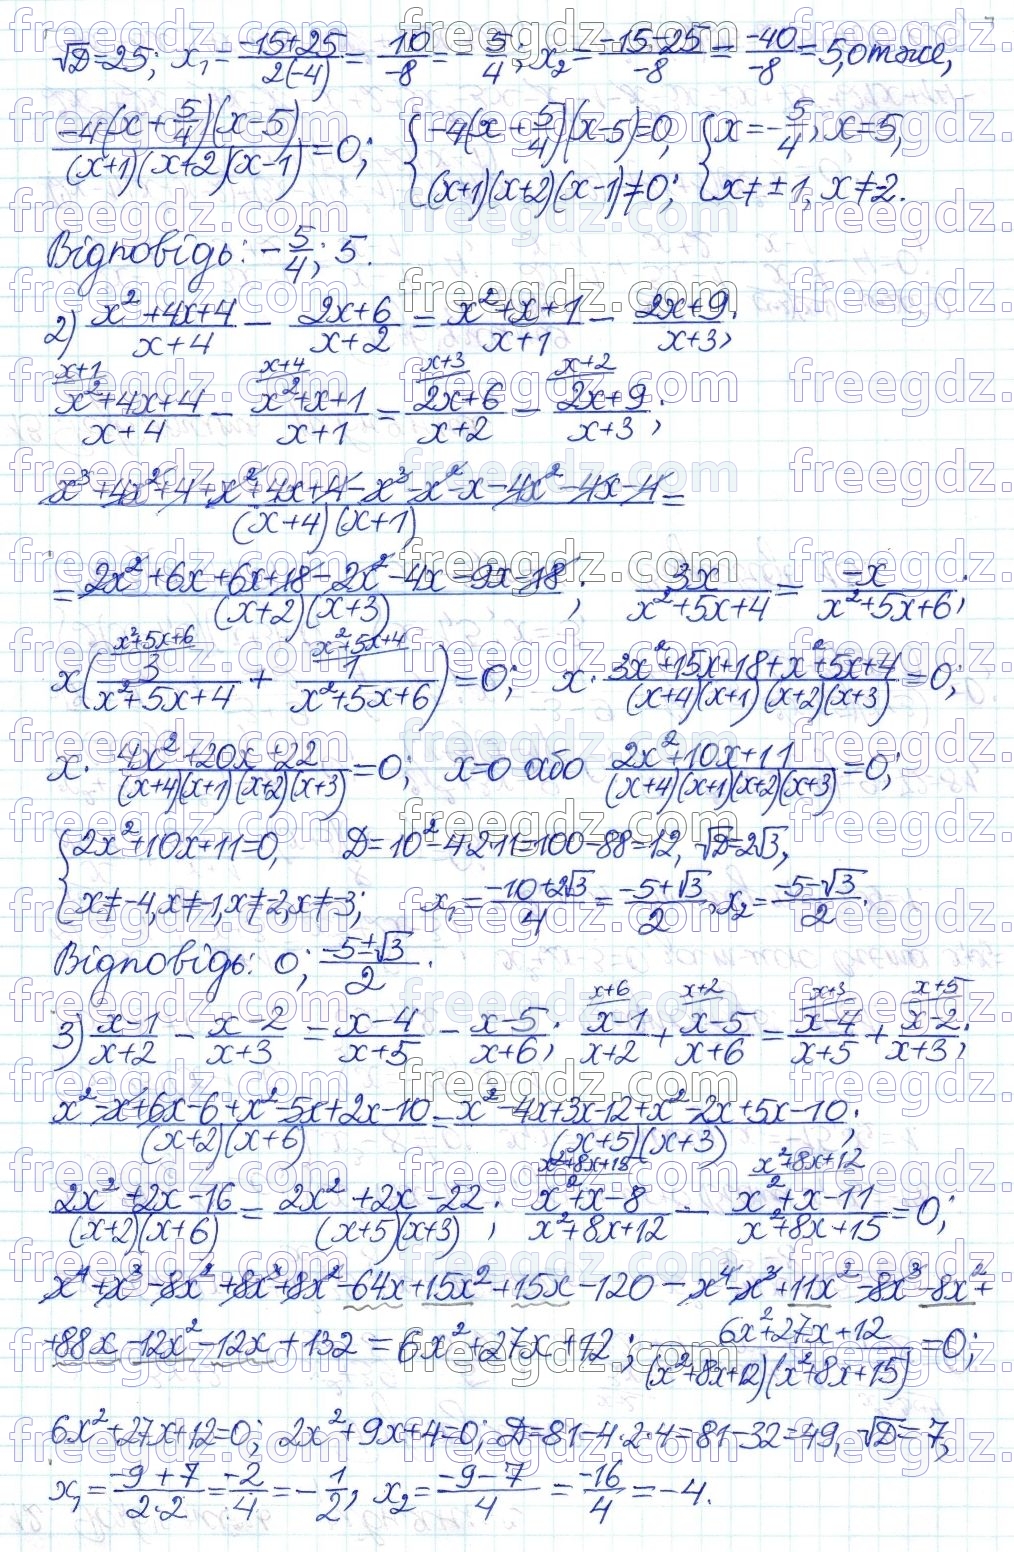 √D=25; x₁ = (-15+25)/(2(-4)) = 10/-8 = -5/4; x₂ = (-15-25)/-8 = -40/-8 = 5, отже,
-4(x+5/4)(x-5)/((x+1)(x+2)(x-1)) = 0; { -4(x+5/4)(x-5)=0, (x+1)(x+2)(x-1)≠0; { x=-5/4, x=5, x≠±1, x≠-2.
Відповідь: -5/4; 5.
2) (x²+4x+4)/(x+4) - (2x+6)/(x+2) = (x²+x+1)/(x+1) - (2x+9)/(x+3);
x+1 x+4 x+3 x+2
(x²+4x+4)/(x+4) - (x²+x+1)/(x+1) = (2x+6)/(x+2) - (2x+9)/(x+3);
(x³+4x²+4+x²+4x+4-x³-x²-x-4x²-4x-4)/((x+4)(x+1)) =
= (2x²+6x+6x+18-2x²-4x-9x-18)/((x+2)(x+3)); 3x/(x²+5x+4) = -x/(x²+5x+6);
x²+5x+6 x²+5x+4
x(3/(x²+5x+4) + 1/(x²+5x+6)) = 0; x·(3x²+15x+18+x²+5x+4)/((x+4)(x+1)(x+2)(x+3)) = 0;
x·(4x²+20x+22)/((x+4)(x+1)(x+2)(x+3)) = 0; x=0 або (2x²+10x+11)/((x+4)(x+1)(x+2)(x+3)) = 0;
{ 2x²+10x+11=0, D=10²-4·2·11=100-88=12, √D=2√3,
x≠-4, x≠-1, x≠-2, x≠-3; x₁ = (-10+2√3)/4 = (-5+√3)/2, x₂ = (-5-√3)/2.
Відповідь: 0; (-5±√3)/2.
x+6 x+2 x+3 x+5
3) (x-1)/(x+2) - (x-2)/(x+3) = (x-4)/(x+5) - (x-5)/(x+6); (x-1)/(x+2) + (x-5)/(x+6) = (x-4)/(x+5) + (x-2)/(x+3);
(x²-x+6x-6+x²-5x+2x-10)/((x+2)(x+6)) = (x²-4x+3x-12+x²-2x+5x-10)/((x+5)(x+3));
x²+8x+15 x²+8x+12
(2x²+2x-16)/((x+2)(x+6)) = (2x²+2x-22)/((x+5)(x+3)); (x²+x-8)/(x²+8x+12) - (x²+x-11)/(x²+8x+15) = 0;
x⁴+x³-8x²+8x³+8x²-64x+15x²+15x-120-x⁴-x³+11x²-8x³-8x²+
+88x-12x²-12x+132 = 6x²+27x+12; (6x²+27x+12)/((x²+8x+12)(x²+8x+15)) = 0;
6x²+27x+12=0; 2x²+9x+4=0; D=81-4·2·4=81-32=49, √D=7,
x₁ = (-9+7)/(2·2) = -2/4 = -1/2, x₂ = (-9-7)/4 = -16/4 = -4.
freegdz.com freegdz.com freegdz.